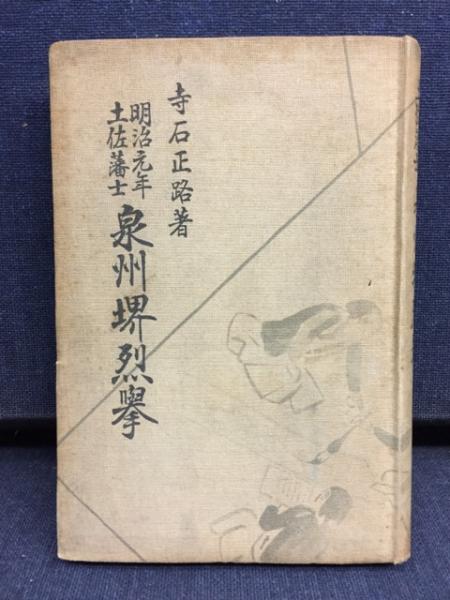 寺石正路著
明治元年
土佐藩士
泉州堺烈擧